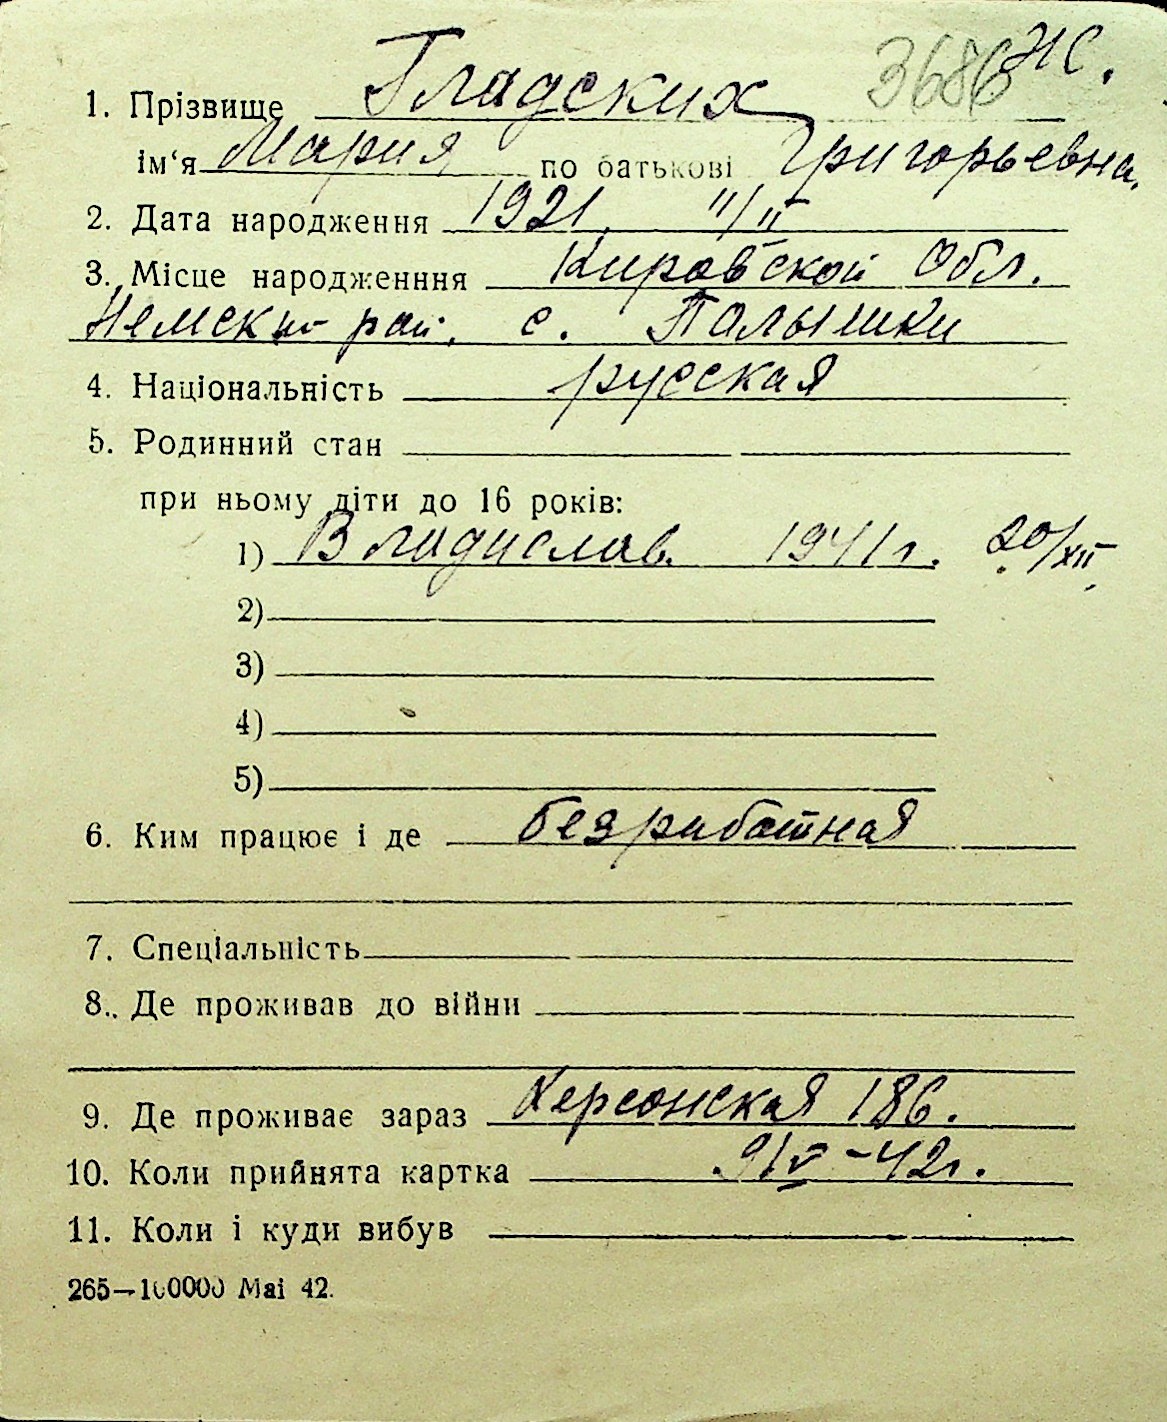 3686 нс.
1. Прізвище Гладских
ім‘я Мария по батькові Григорьевна.
2. Дата народження 1921, 11/II
3. Місце народженння Кировской Обл.
Немский рай. с. Полышки
4. Національність русская
5. Родинний стан
при ньому діти до 16 років:
1) Владислав. 1941 г. 20/XII
2)
3)
4)
5)
6. Ким працює і де безработная
7. Спеціальність
8. Де проживав до війни
9. Де проживає зараз Херсонская 186.
10. Коли прийнята картка 9/V-42 г.
11. Коли і куди вибув
265—100000 Маі 42.